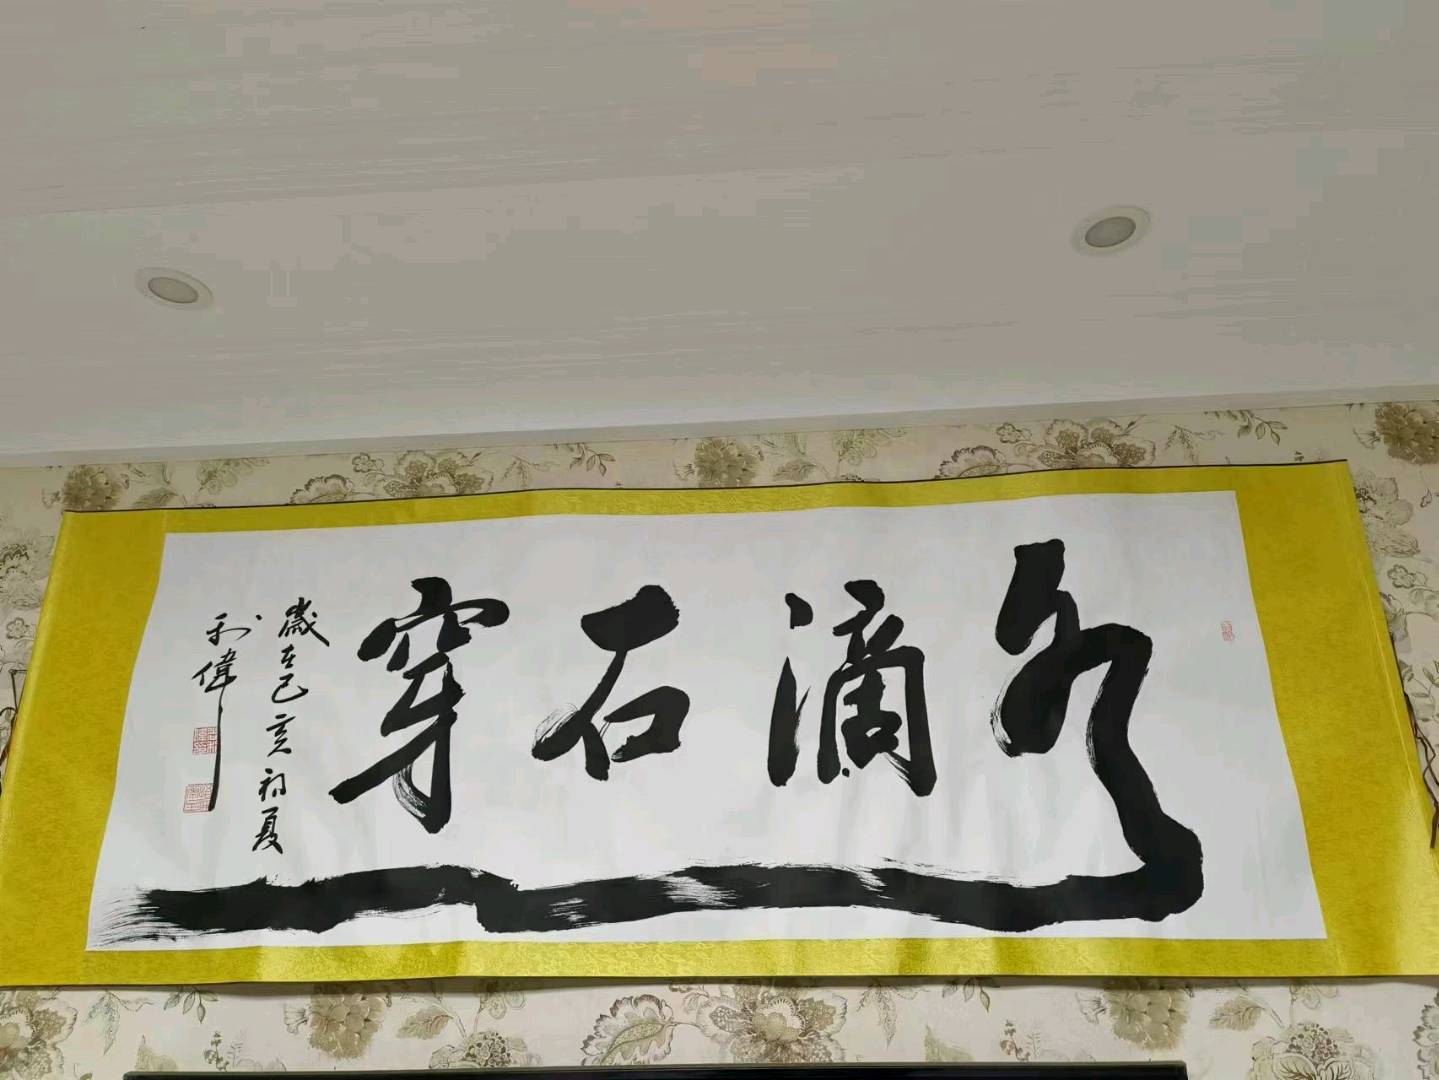 水滴石穿
歲在己亥初夏
利偉